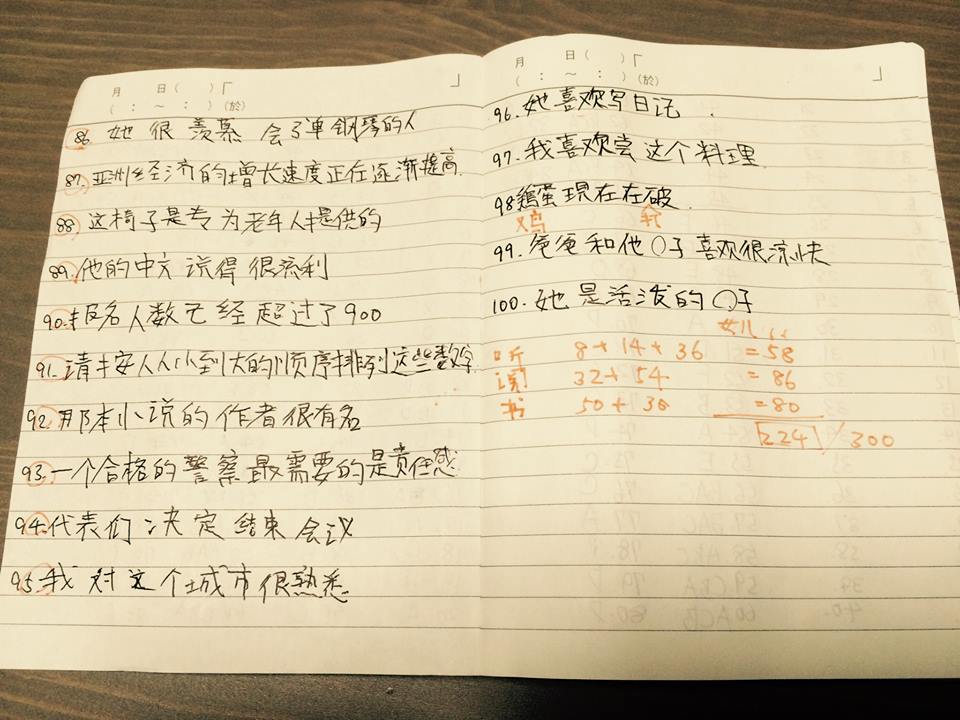 月 日( )「 」
( : ~ : )(於)
86. 她很羡慕会弹钢琴的人
87. 亚洲经济的增长速度正在逐渐提高.
88. 这椅子是专为老年人提供的
89. 他的中文说得很流利
90. 报名人数已经超过了900
91. 请按从小到大的顺序排列这些数字.
92. 那本小说的作者很有名
93. 一个合格的警察最需要的是责任感
94. 代表们决定结束会议
95. 我对这个城市很熟悉
月 日( )「 」
( : ~ : )(於)
96. 她喜欢写日记.
97. 我喜欢尝这个料理
98 鶏蛋現在在破.
鸡
99. 爸爸和他〇子喜欢很凉快
100. 她是活泼的〇子
女儿
听 8+14+36 =58
说 32+54 =86
书 50+30 =80
224/300